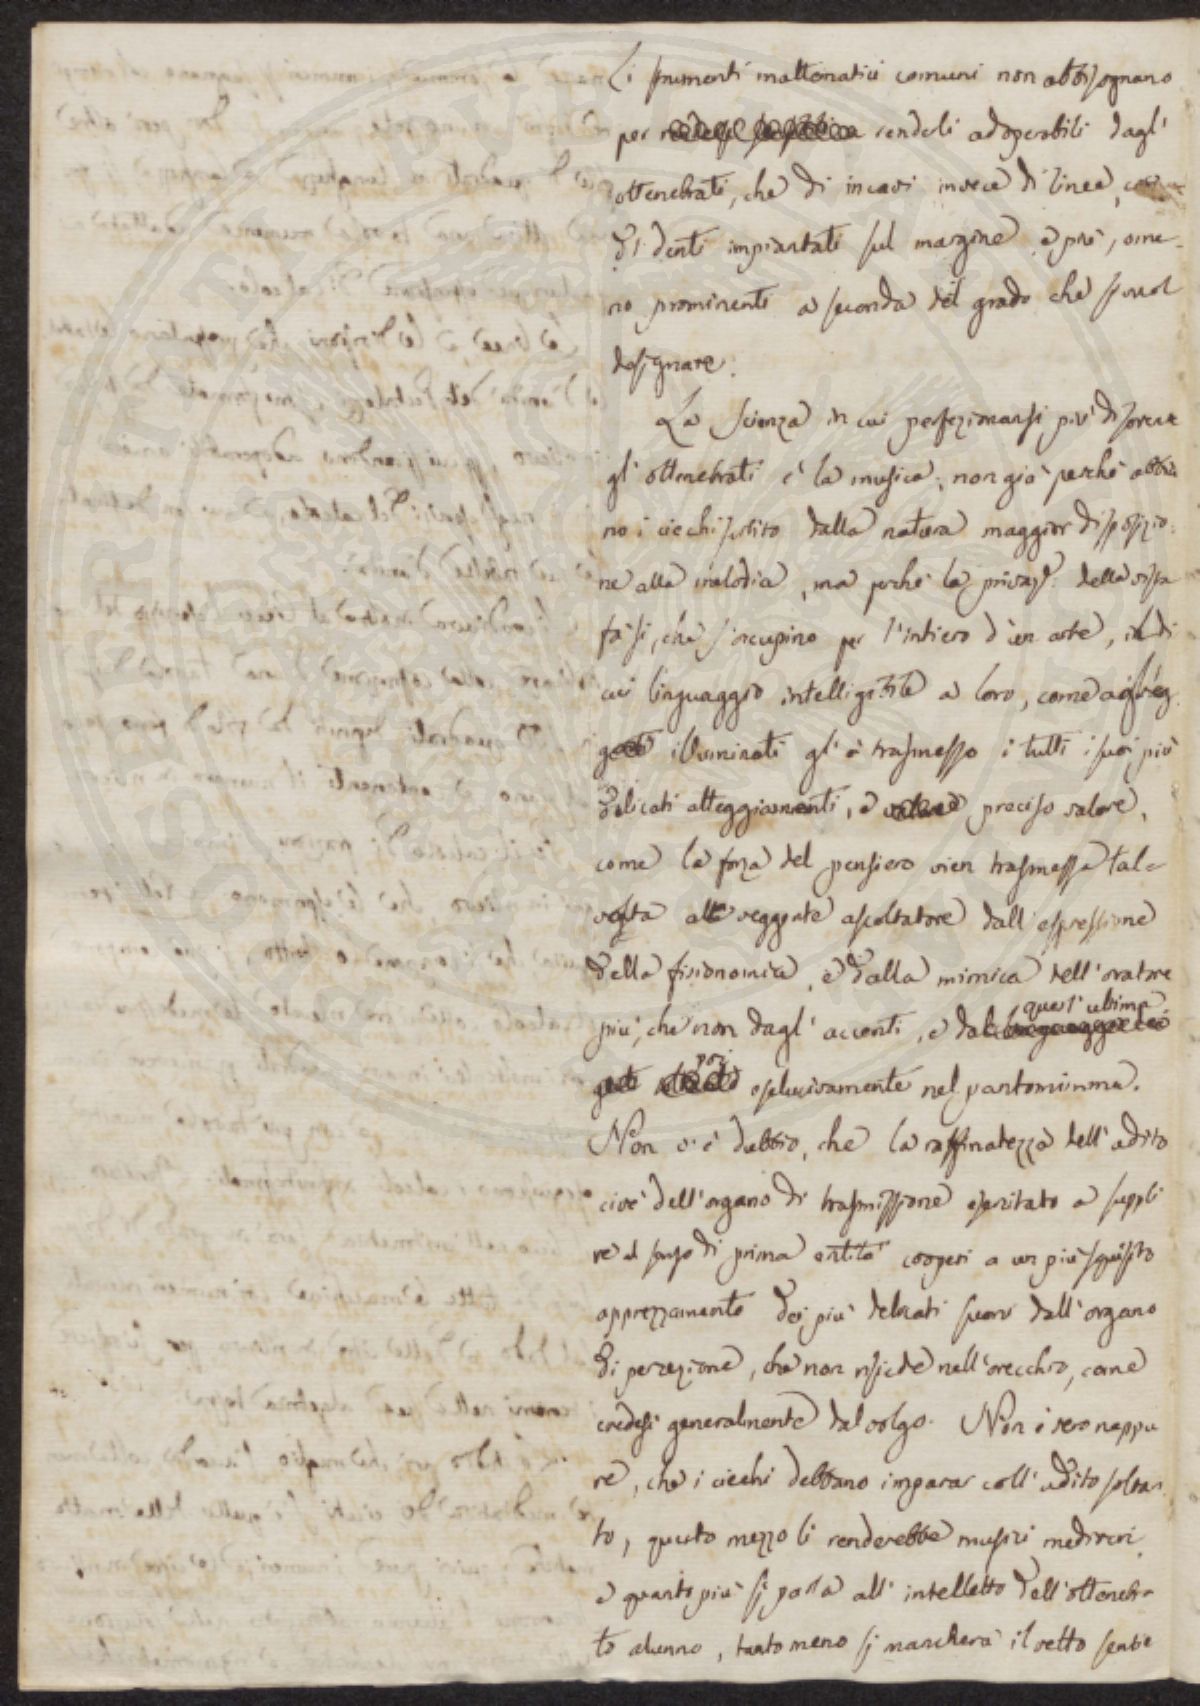 Li strumenti mattematici comuni non abbisognano
per renderli adoperabili dagl'
ottenebrati, che di incavi invece di linee,
di denti impiantati sul margine e più, o me-
no prominenti a seconda del grado che si vuol
dessignare.
La Scienza in cui perfezionarsi più di sovente
gl'ottenebrati è la musica; non già perchè abbia
no i ciechi sortito dalla natura maggior disposizio-
ne alla melodia, ma perchè la privaz.e della vista
fa sì, che s'occupino per l'intiero d'un arte, il di
cui linguaggio intelligibile a loro, come agli
illuminati gl'è trasmesso i tutti i suoi più
delicati atteggiamenti, e preciso valore,
come la forza del pensiero vien trasmessa tal-
volta al veggente ascoltatore dall'espressione
della fisionomia, e dalla mimica dell'oratore
più, che non dagl'accenti, e da quest'ultima
poi esclusivamente nel pantomimma.
Non v'è dubbio, che la raffinatezza dell'udito
cioè dell'organo di trasmissione esercitato a suppli
re al senso di prima entità cooperi a un più squisito
apprezzamento dei più delicati suoni dall'organo
di percezione, che non risiede nell'orecchio, come
credesi generalmente dal volgo. Non è vero neppu
re, che i ciechi debbano imparar coll'udito soltan
to, questo mezzo li renderebbe musici mediocri,
e quanto più si parla all'intelletto dell'ottenebra
to alunno, tanto meno si mancherà il retto sentie